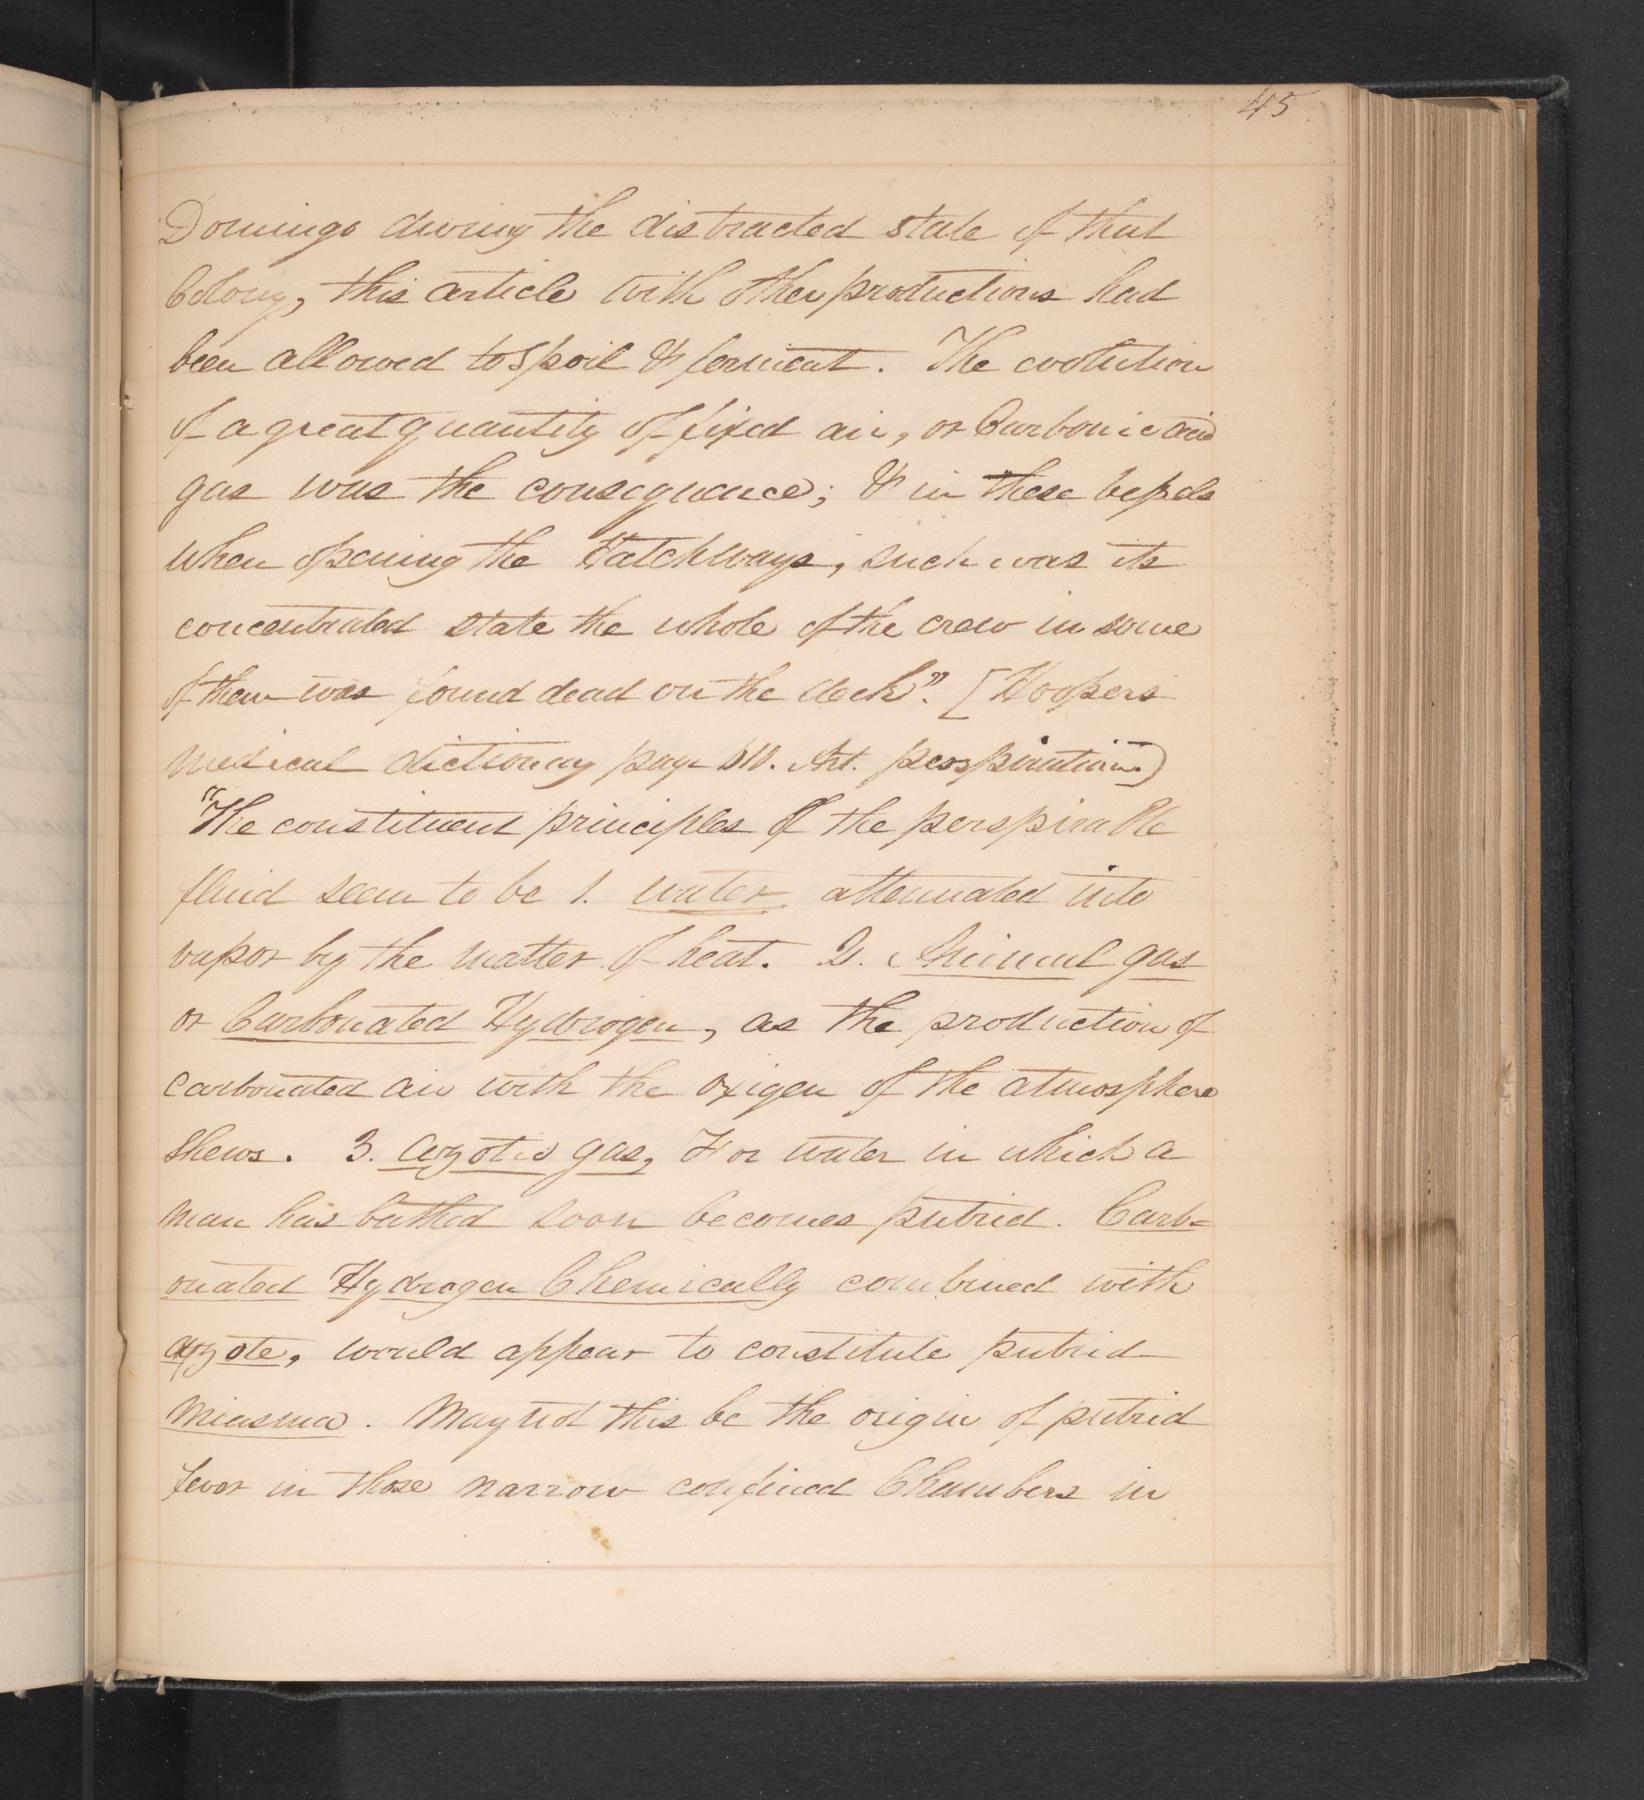 45
Domingo during the distracted state of that
Colony, this article with other productions had
been allowed to spoil & ferment. The evolution
of a great quantity of fixed air, or Carbonic acid
gas was the consequence; & in these vessels
when opening the Hatchways, such was its
concentrated state the whole of the crew in some
of them was found dead on the deck". [Hoopers
medical dictionary page Art. perspiration.)
"The constituent principles of the perspirable
fluid seem to be 1. water attenuated into
vapor by the matter of heat. 2. Animal gas
or Carbonated Hydrogen, as the production of
carbonated air with the oxigen of the atmosphere
shews. 3. azotic gas, For water in which a
man has bathed soon becomes putrid. Carb=
onated Hydrogen Chemically combined with
azote, would appear to constitute putrid
miasma. May not this be the origin of putrid
fever in those narrow confined Chambers in